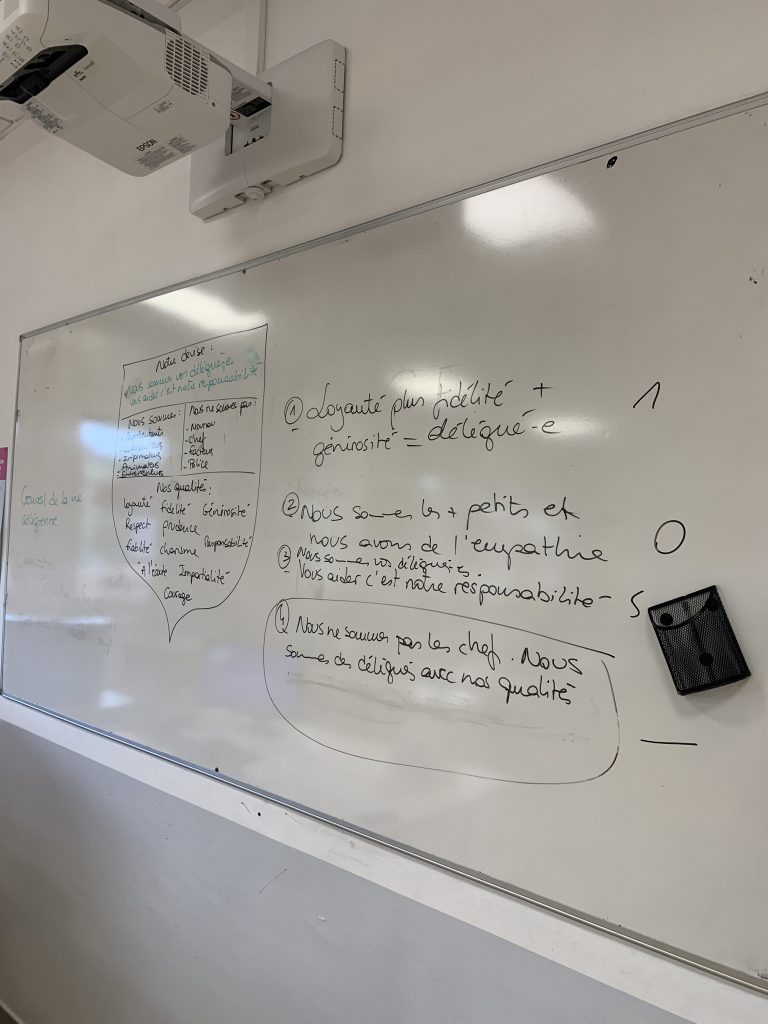 EPSON
Notre devise :
Nous sommes vos délégué-e-s
Vous aider c'est notre responsabilité
Nous sommes :
- Informateurs
- Animateurs
Nous ne sommes pas :
- Nounou
- Chef
- Facteur
- Police
Nos qualités :
Loyauté fidélité Générosité
Respect prudence
fiabilité charisme Responsabilité
A l'écoute Impartialité
Courage
Conseil de la vie
collégienne
① Loyauté plus fidélité +
générosité = délégué-e
1
② Nous sommes les + petits et
nous avons de l'empathie
0
③ Nous sommes vos délégué-e-s
Vous aider c'est notre responsabilité
5
④ Nous ne sommes pas les chef. Nous
sommes des délégués avec nos qualités
—